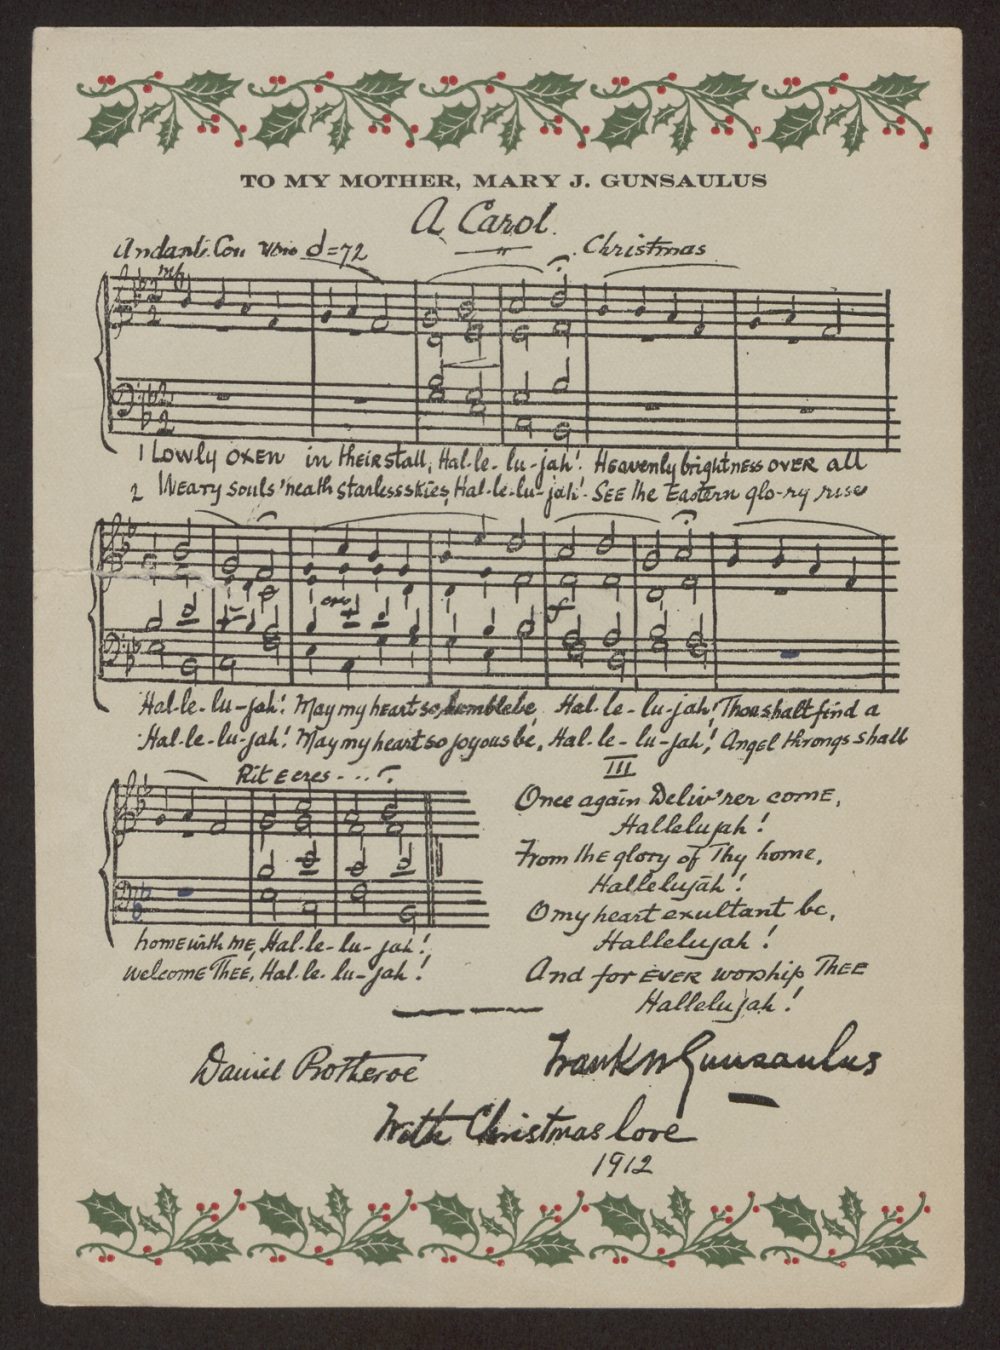 TO MY MOTHER, MARY J. GUNSAULUS
A Carol
Andante Con moto d=72 Christmas
mf
1 Lowly oxen in their stall, Hal-le-lu-jah! Heavenly brightness over all
2 Weary souls 'neath starless skies, Hal-le-lu-jah! See the Eastern glo-ry rise
cres
f
Hal-le-lu-jah! May my heart so humble be Hal-le-lu-jah! Thou shalt find a
Hal-le-lu-jah! May my heart so joyous be, Hal-le-lu-jah! Angel throngs shall
Rit E cres - . . .
home with me, Hal-le-lu-jah!
welcome Thee, Hal-le-lu-jah!
III
Once again Deliv'rer come,
Hallelujah!
From the glory of Thy home,
Hallelujah!
O my heart exultant be,
Hallelujah!
And for ever worship Thee
Hallelujah!
Daniel Protheroe
Frank W Gunsaulus
With Christmas love
1912